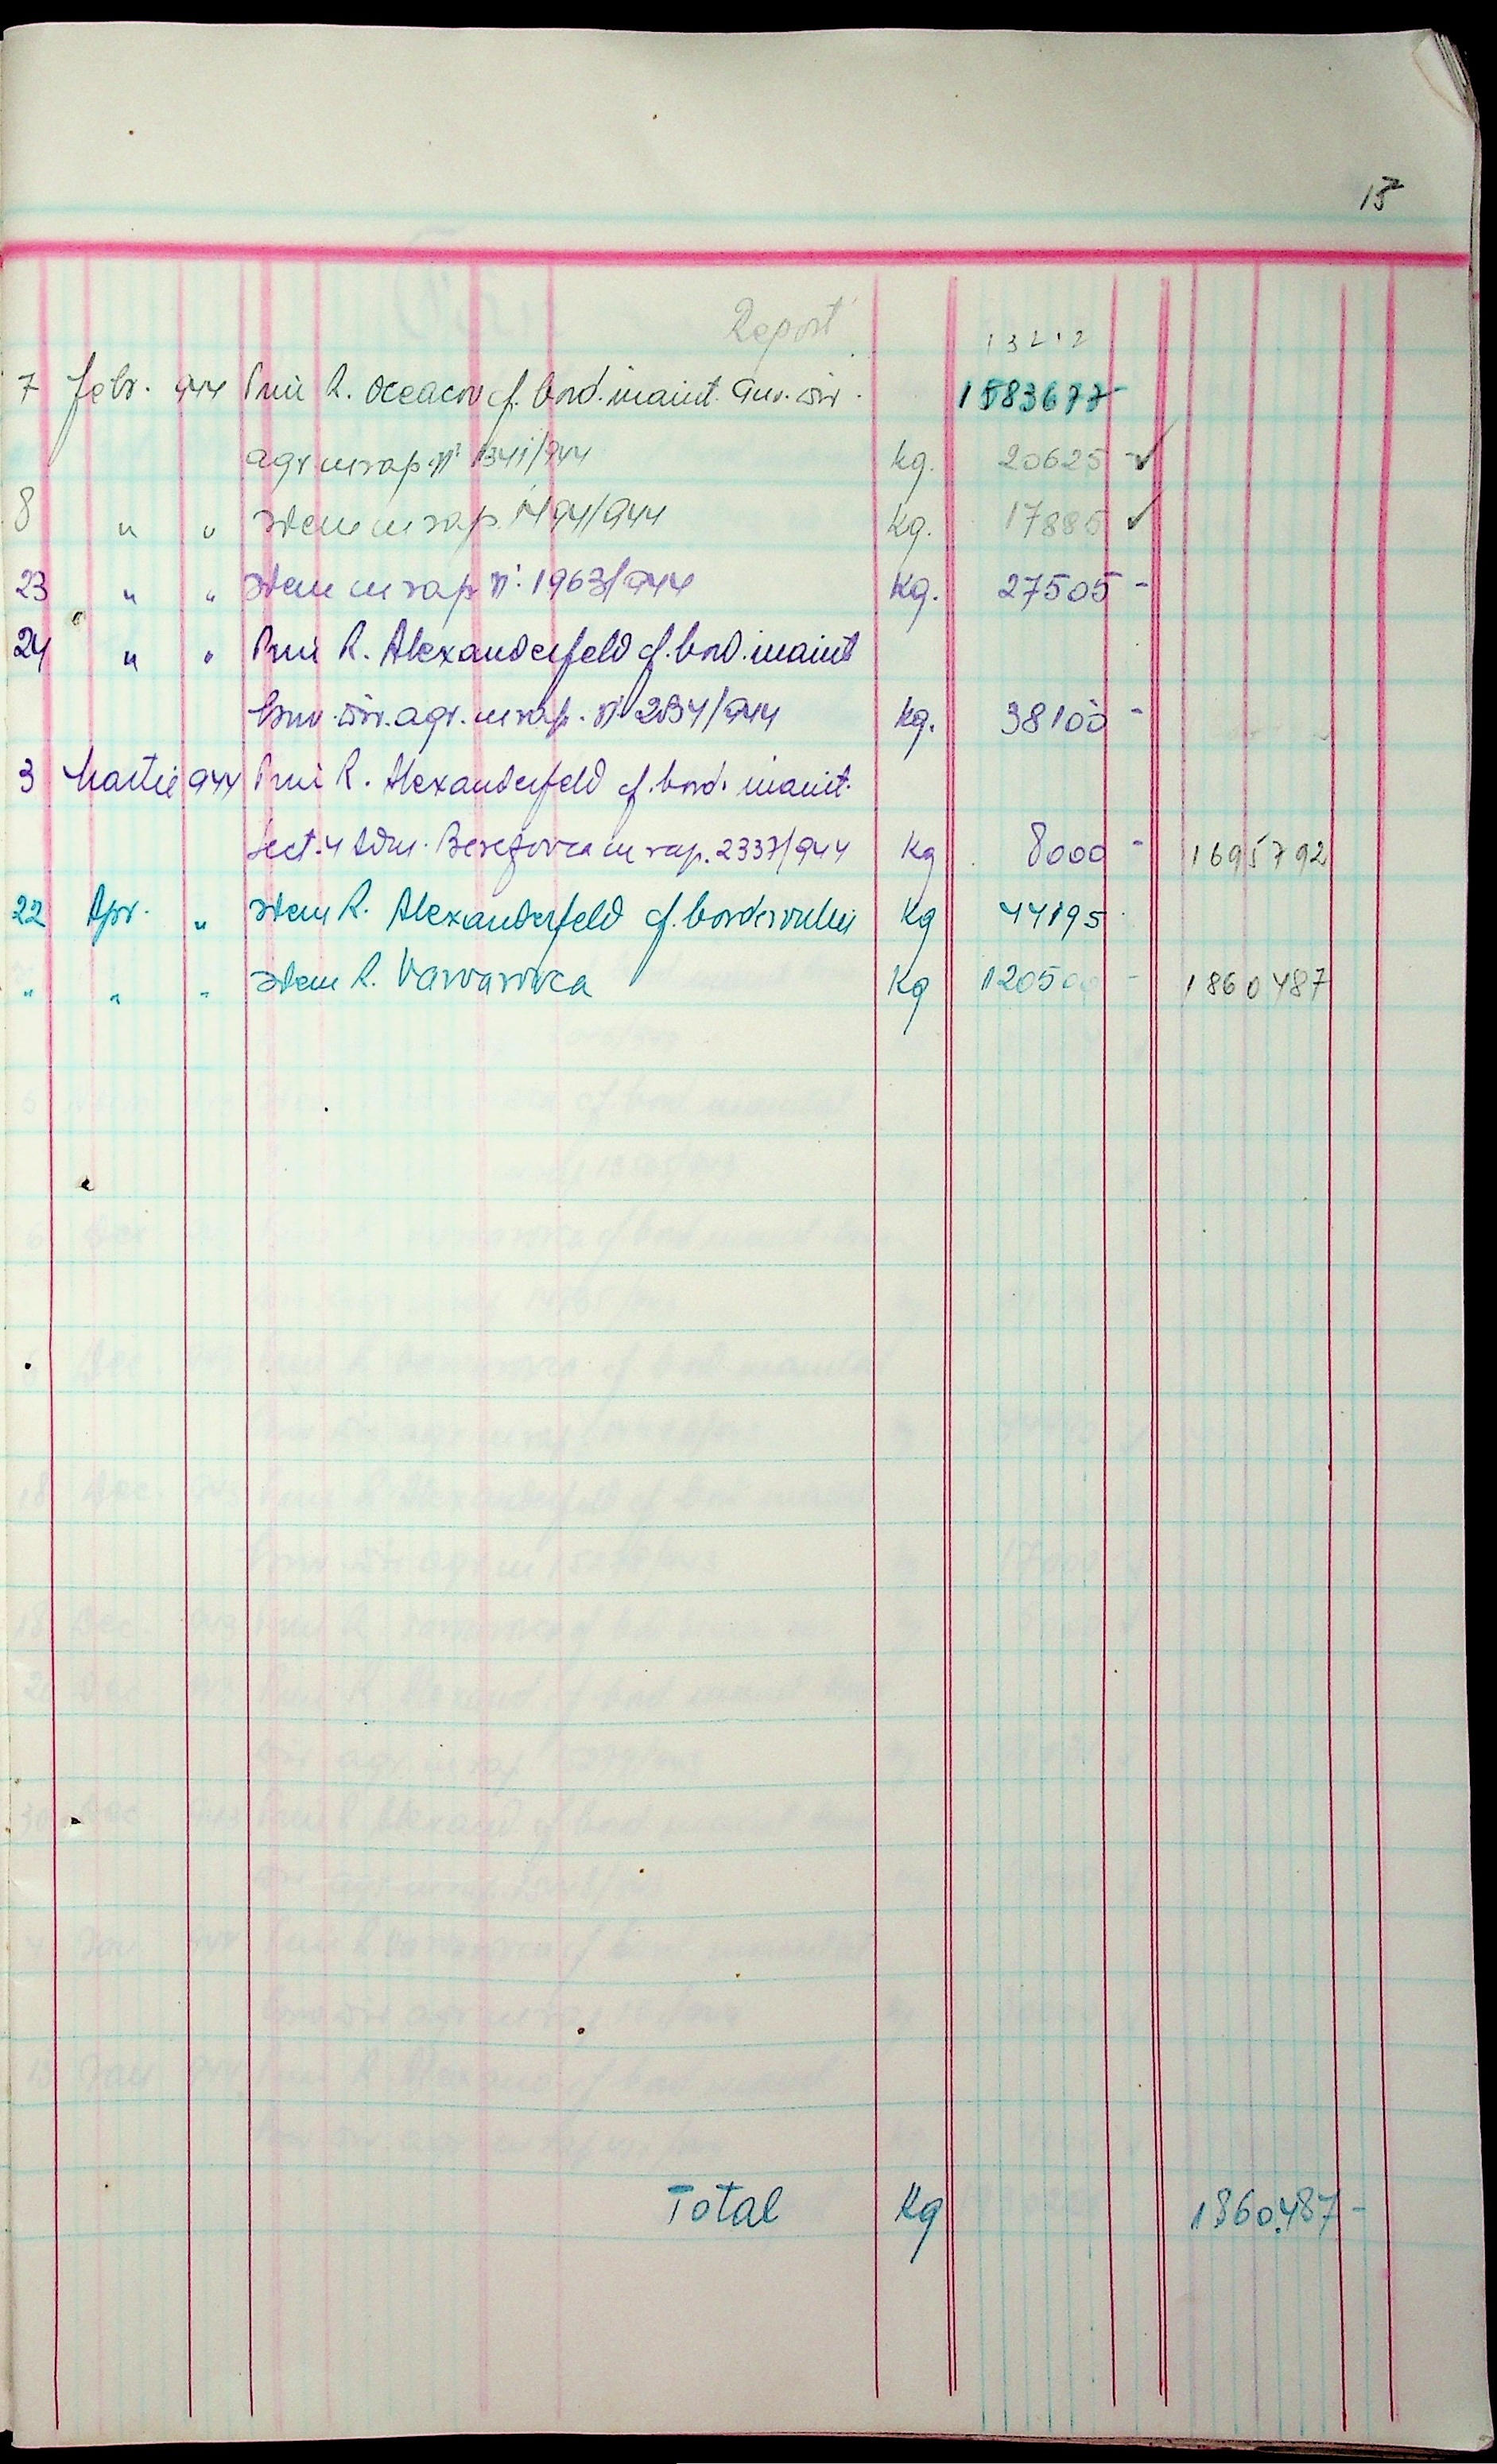 15
Report
1583677-
7 Febr. 944 Prin R. Oceacov cf. bord. inaint.
agr cu rap. Nº 1341/944 kg. 20625 -
8 " " Idem cu rap. 1494/944 kg. 17885
23 " " Idem cu rap Nº 1963/944 kg. 27505 -
24 " " Prin R. Alexanderfeld cf. bord. inaint
dir. agr. cu rap. Nº 2834/944 kg. 38100 -
3 Martie 944 Prin R. Alexanderfeld cf. bord. inaint.
Sect. 4 Adm. Berezovca cu rap. 2337/944 kg 8000 - 1695792
22 Apr. " Idem R. Alexanderfeld cf. borderoului kg 44195
" " " Idem R. Varvarovca kg 120500 - 1860487
Total kg 1860.487 -